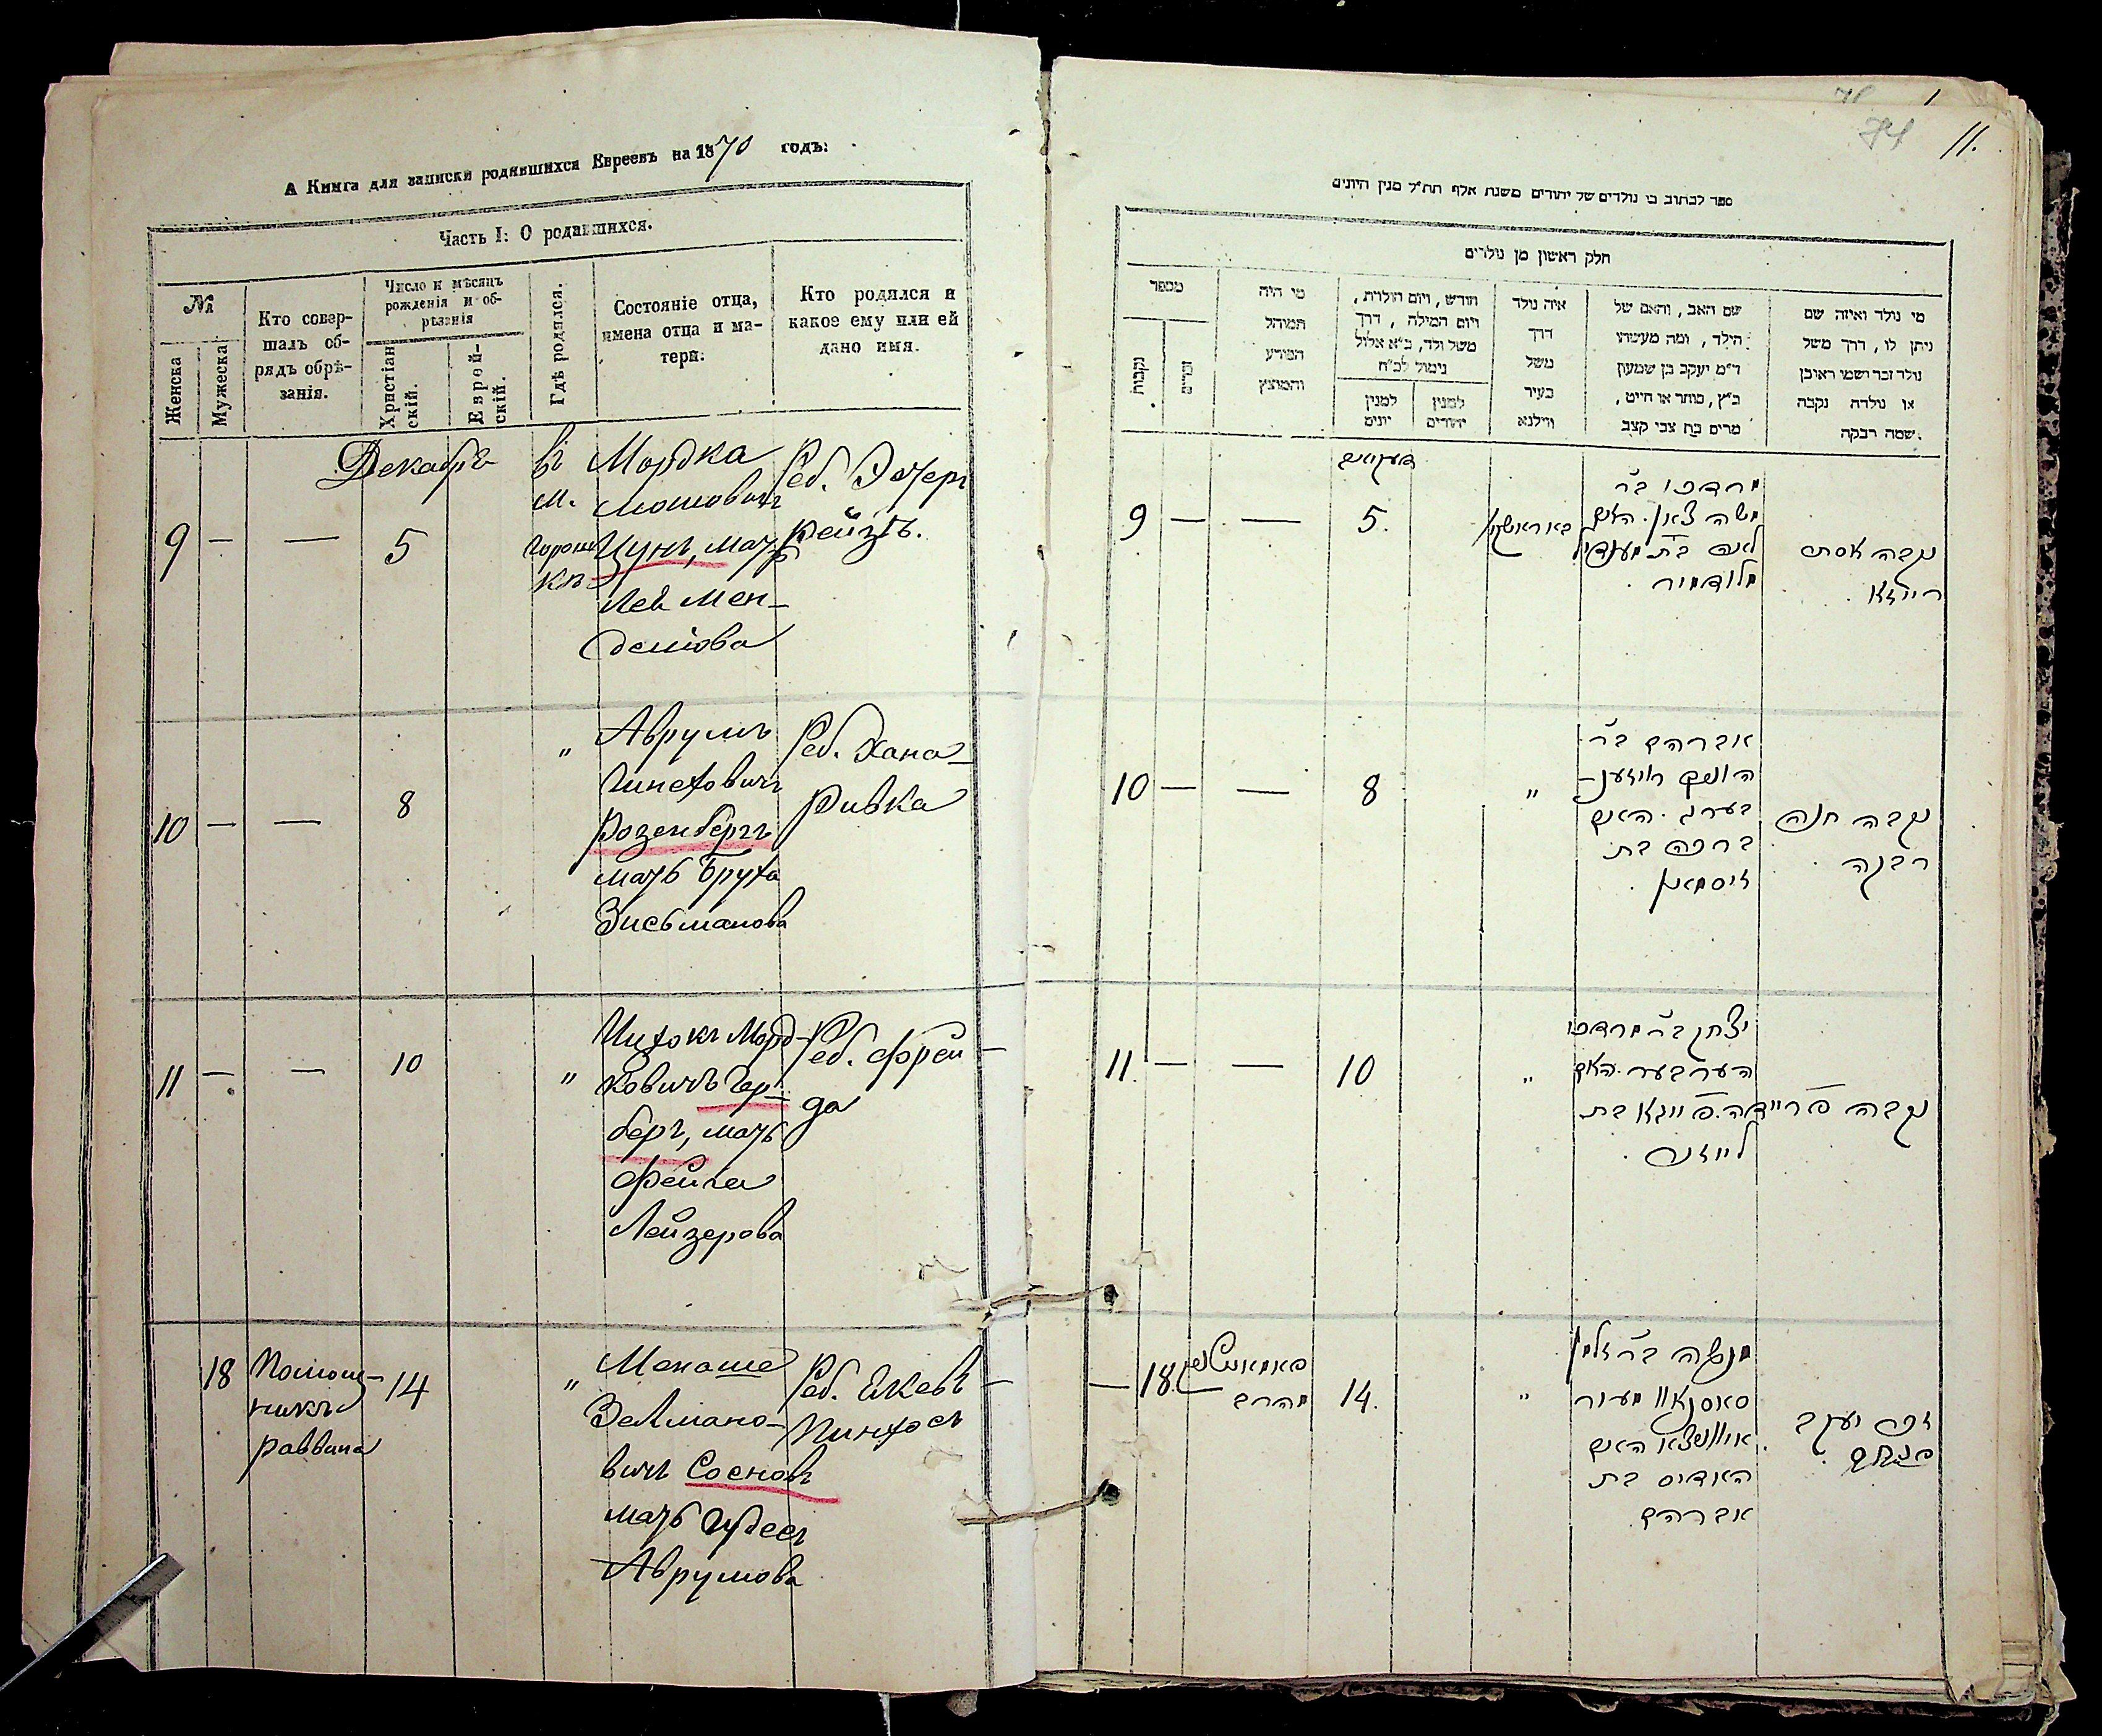 А Книга для записки родившихся Евреевъ на 1870 годъ:
Часть I: О родившихся.
№
Женска
Мужеска
Кто совер-
шалъ об-
рядъ обрѣ-
занія.
Число и мѣсяцъ
рожденія и об-
рѣзанія
Христіан
скій.
Еврей-
скій.
Гдѣ родился.
Состояніе отца,
имена отца и ма-
тери:
Кто родился и
какое ему или ей
дано имя.
Декабрь
9 — — 5
въ
м.
Мордка
Мошовичъ
Цунъ, мать
Лея Мен-
делiова
Реб. Эстеръ
Рейзѣ.
10 — — 8 "
Аврумъ
Розенбергъ
мать Бруха
Зисьманова
Реб. Хана
Ривка
11 — — 10 "
Ицхокъ Морд-
ковичъ Гер-
беръ, мать
Фейга
Лейзерова
Реб. Фрей-
да
18
Помощ-
никъ
раввина
14 "
Менаше
Зельмано-
вичъ Сосновъ
мать Гудесъ
Аврумова
Реб. Якевъ
Пинхосъ
74 11.
ספר לכתוב בו נולדים של יהודים משנת אלף תת״ל מנין היונים
חלק ראשון מן נולדים
מספר
נקבות
זכרים
מי היה
המוהל
המודע
והמוצץ
חודש, ויום הולדת,
ויום המילה, דרך
משל ולד, כ״א אלול
נימול לכ״ח
למנין
יונים
למנין
יהודים
איה נולד
דרך
משל
בעיר
ווילנא
שם האב, והאם של
הילד, ומה מעשהו
ד״מ יעקב בן שמעון
כ״ץ, סוחר או חייט,
מרים בת צבי קצב
מי נולד ואיזה שם
ניתן לו, דרך משל
נולד זכר ושמו ראובן
או נולדה נקבה
שמה רבקה.
9 — — 5.
מרדכי ב״ר
משה צאן. האם
לאה בת מענדיל
נקבה אסתר
רייזא
10 — — 8 "
אברהם ב״ר
רוזענ-
בערג. האם
ברכה בת
זיסמאן.
נקבה חנה
רבקה
11. — — 10 "
יצחק ב״ר מרדכי
הערבער. האם
פייגא בת
לייזר.
נקבה פריידה.
— 18. 14. "
מנשה ב״ר זלמן
סאסנאוו
האם
האדיס בת
אברהם.
זכר יעקב
פנחס.